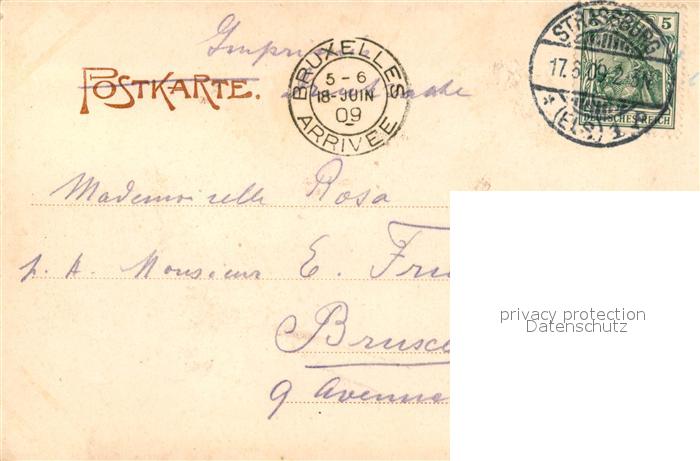 Imprimé
POSTKARTE.
BRUXELLES
5 - 6
18-JUIN
09
ARRIVEE
STRASSBURG
17.6.09.2
*(ELS.) 1
5
DEUTSCHES REICH
Mademoiselle Rosa
p. A. Monsieur E. Fru
Bruxe
9 Avenue
privacy protection
Datenschutz